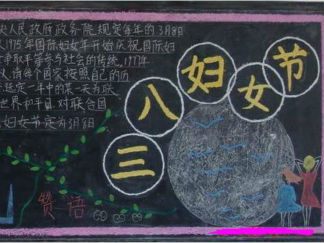 央人民政府政务院规定每年的3月8日
从1975年国际妇女年开始庆祝国际妇
争取平等参与社会的传统,1977年
请各个国家按照自己的历
选定一年中的某一天为联
世界和平日 对联合国
妇女节定为3月8日
三八妇女节
赞语